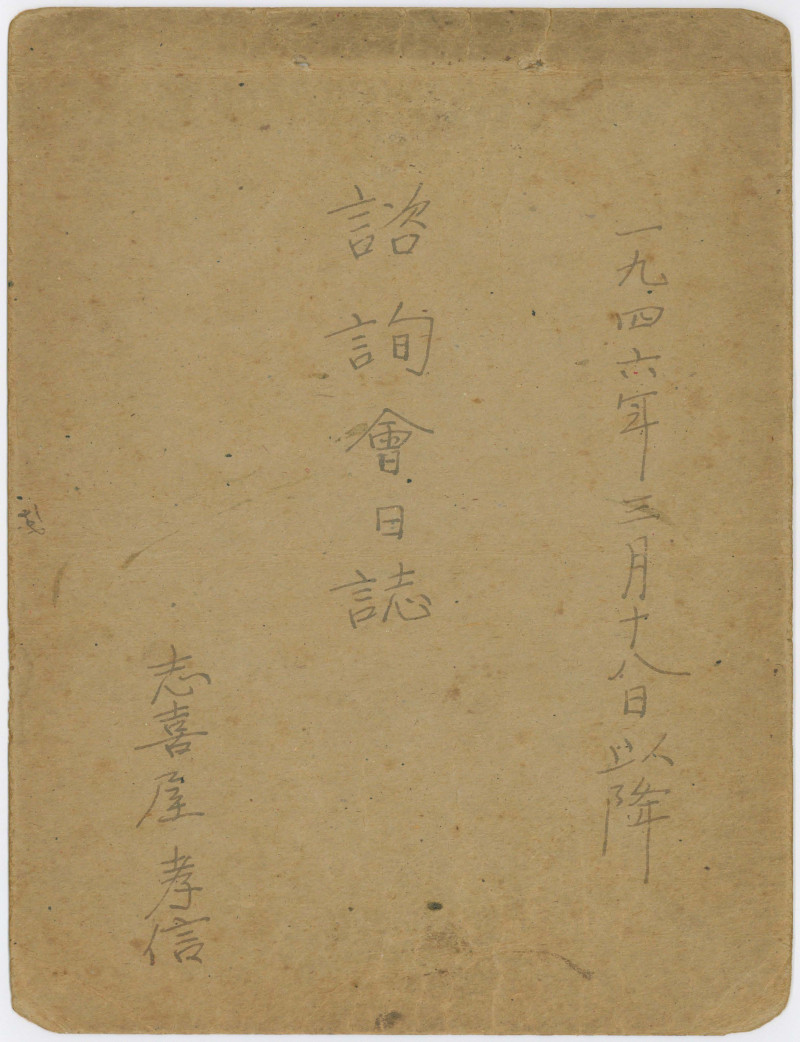 一九四六年三月十八日以降
諮詢會日誌
志喜屋孝信